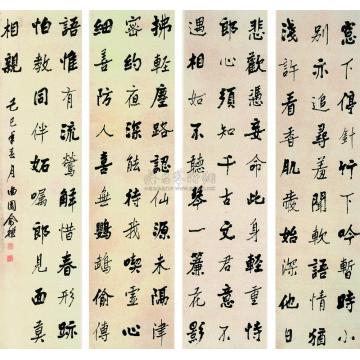 窓下停針竹下琴暫時小
別亦追尋羞聞軟語情猶
淺許看香肌愛始深他日
悲歡憑妾命此身輕重恃
郎心須知千古文君意不
遇相如不聽琴一簾花影
拂輕塵路認仙源未隔津
密約夜深能待我喫虛心
細善防人喜無鸚鵡偷傳
語惟有流鶯解惜春形跡
怕教同伴妬囑郎見面莫
相親
己巳 月曲園俞樾